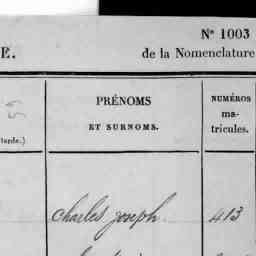 Nº 1003
E.
de la Nomenclature
PRÉNOMS
ET SURNOMS.
NUMÉROS
ma-
tricules.
tarde.)
charles joseph 413